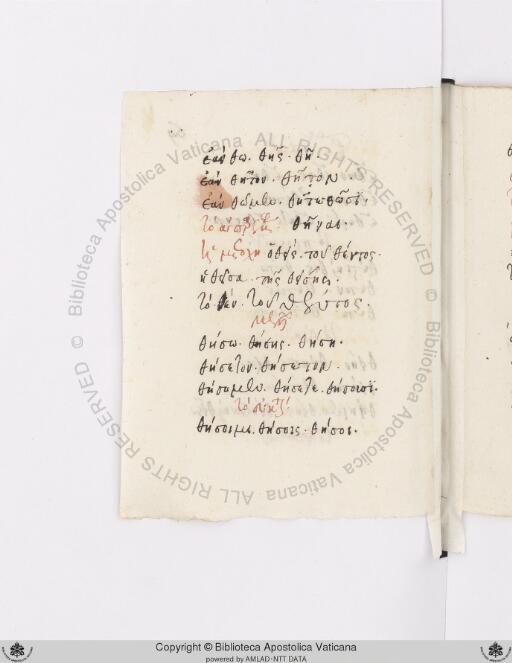 ἐὰν θῶ. θῇς. θῇ.
ἐὰν θῆτον. θῆτον.
ἐὰν θῶμεν. θῆτε θῶσι.
θῆναι.
ὁ θείς. τοῦ θέντος.
ἡ θεῖσα. τῆς θείσης.
τὸ θέν. τοῦ θέντος.
θήσω. θήσεις. θήσει.
θήσετον. θήσετον.
θήσομεν. θήσετε. θήσουσι.
θήσοιμι. θήσοις. θήσοι.
© Biblioteca Apostolica Vaticana ALL RIGHTS RESERVED
© Biblioteca Apostolica Vaticana ALL RIGHTS RESERVED
Copyright © Biblioteca Apostolica Vaticana
powered by AMLAD-NTT DATA